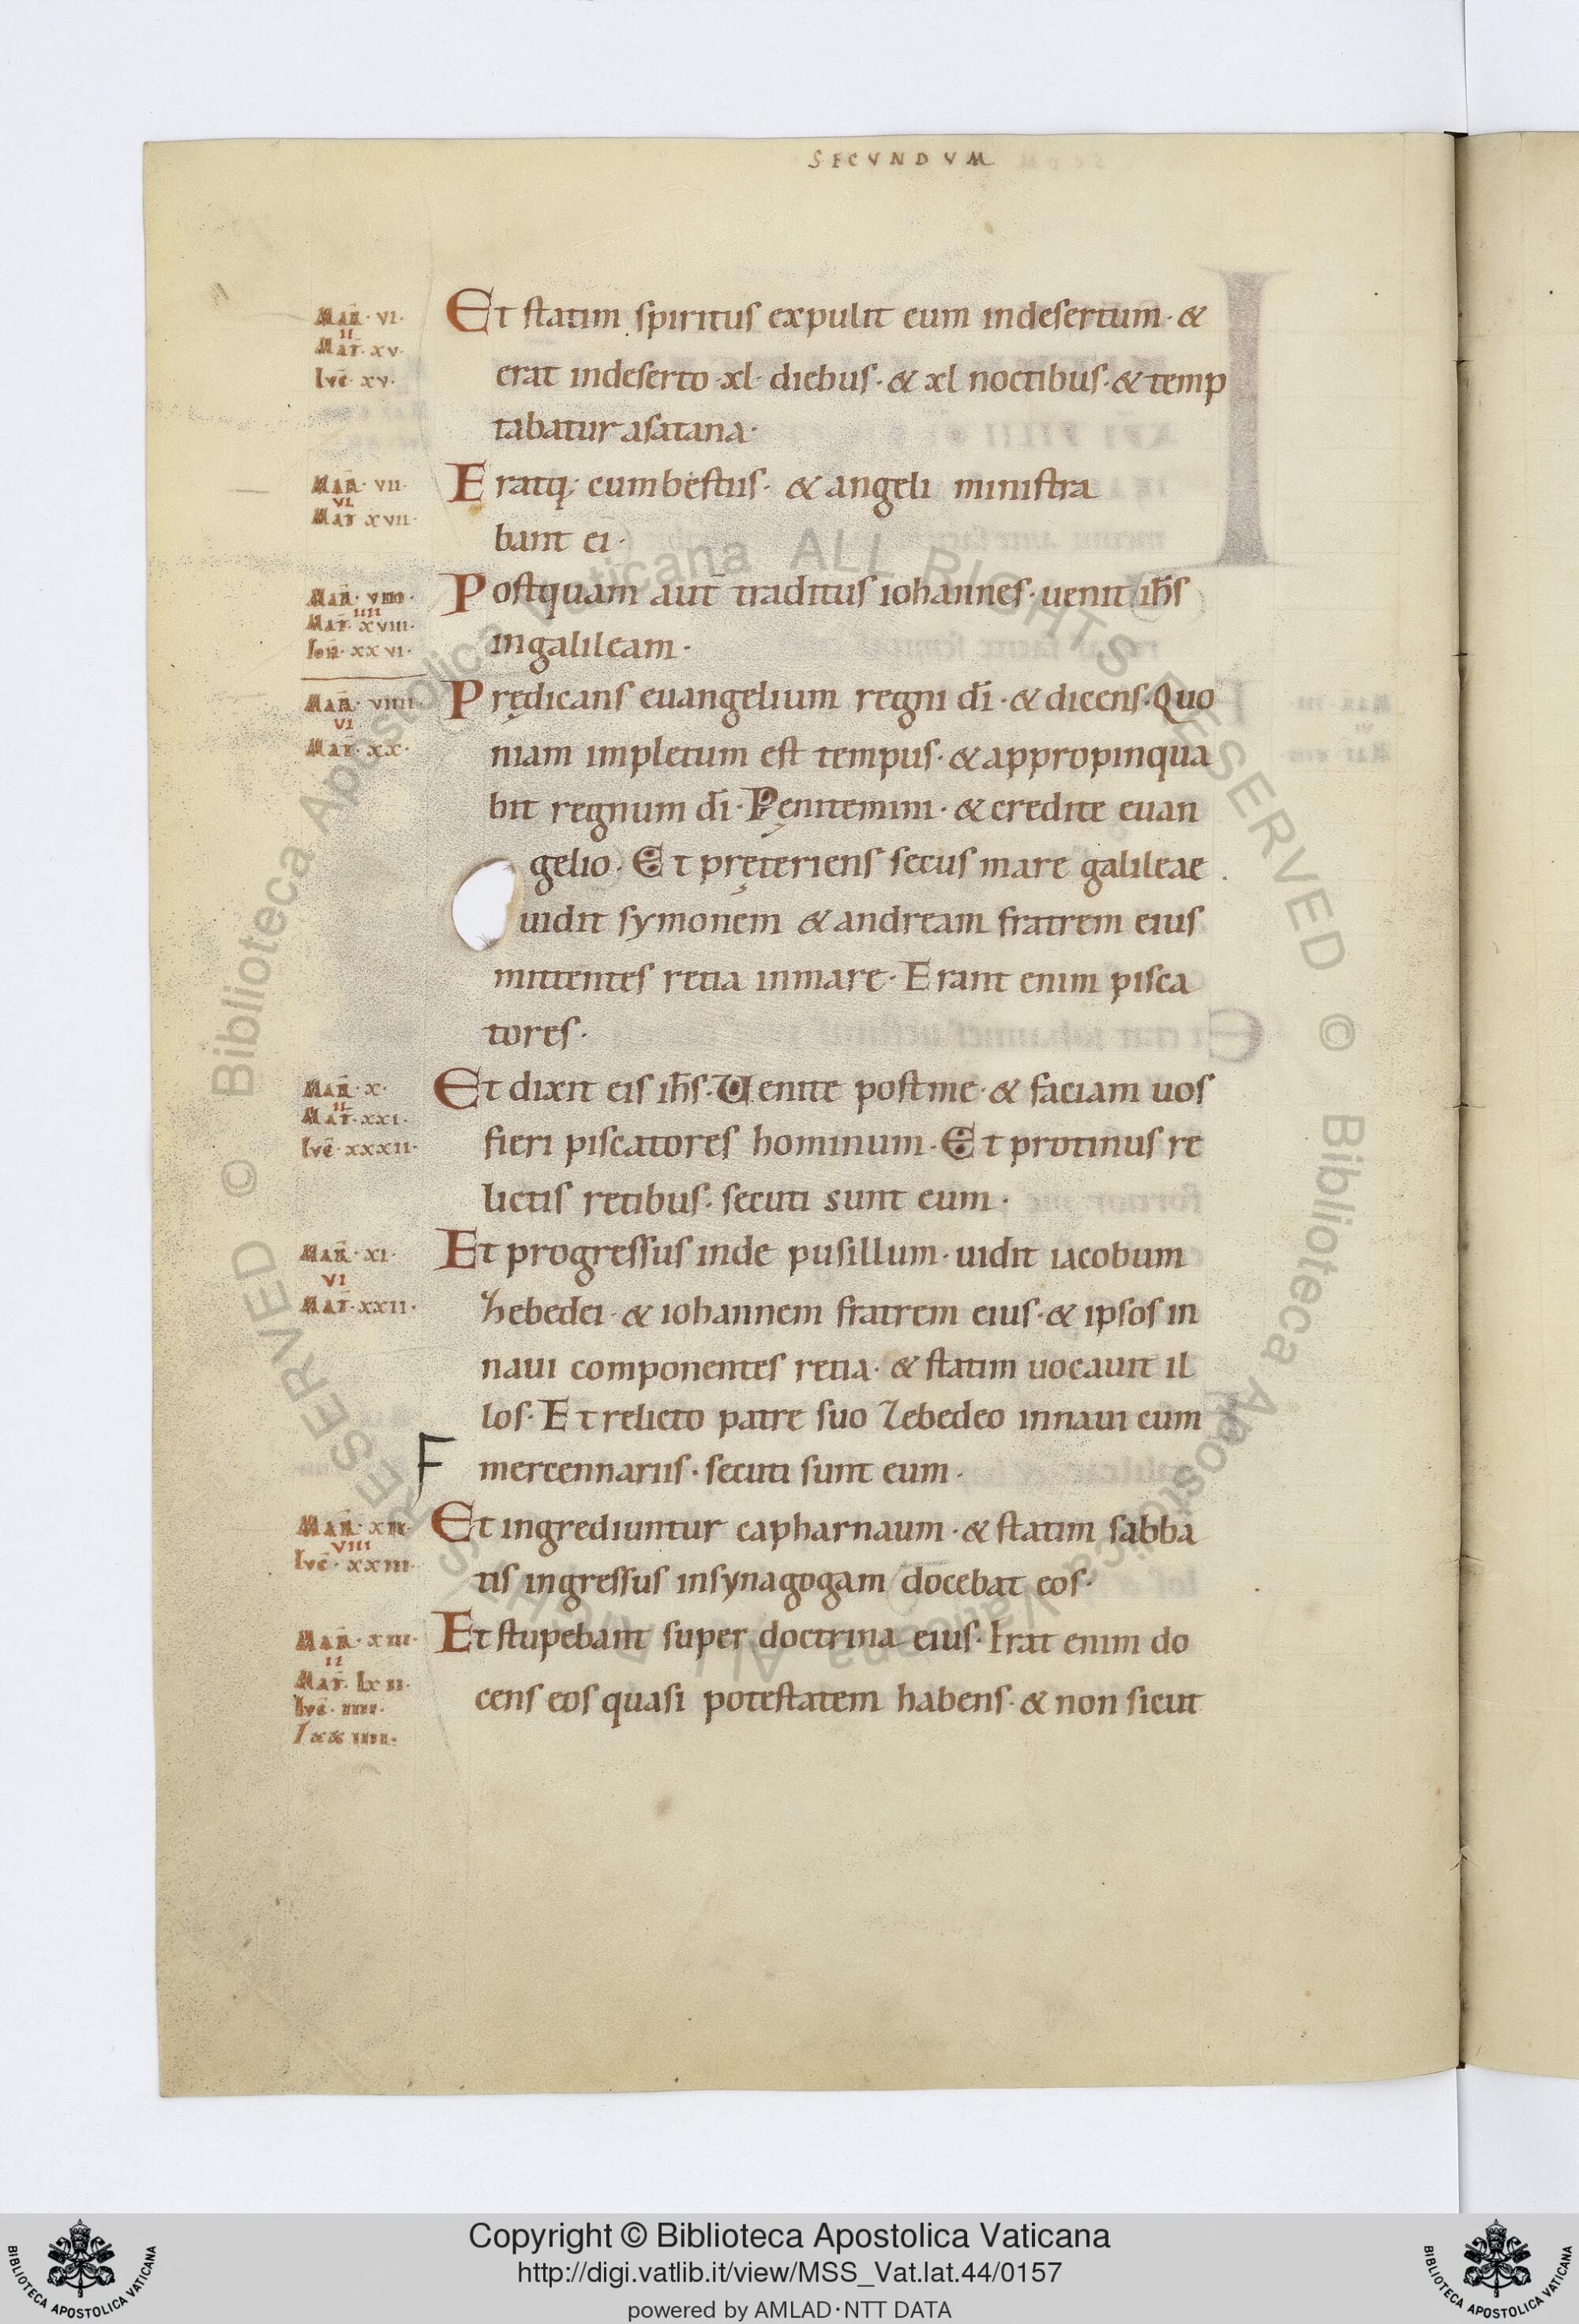 SECVNDVM
Mar̄· VI·
II
Mat̄· XV·
Luc̄· XV·
Et statim spiritus expulit eum indesertum· &
erat indeserto ·xl· diebus· & xl noctibus· & temp
tabatur asatana·
Mar̄· VII·
VI
Mat XVII·
Eratq; cumbestiis· & angeli ministra
bant ei·
Mar̄· VIII·
IIII
Mat̄· XVIII·
Ioh̄· XXVI·
Postquam aut̄ traditus iohannes· uenit ih̄s
ingalileam·
Mar̄· VIIII·
VI
Mat̄· XX·
Prędicans euangelium regni dī· & dicens· Quo
niam impletum est tempus· & appropinqua
bit regnum dī· Pęnitemini· & credite euan
gelio· Et pręteriens secus mare galileae
uidit symonem & andream fratrem eius
mittentes retia inmare· Erant enim pisca
tores·
Mar̄· X·
II
Mat̄· XXI·
Luc̄· XXXII·
Et dixit eis ih̄s· Uenite postme· & faciam uos
fieri piscatores hominum· Et protinus re
lictis retibus· secuti sunt eum·
Mar̄· XI·
VI
Mat̄· XXII·
Et progressus inde pusillum· uidit iacobum
Zebedei· & iohannem fratrem eius· & ipsos in
naui componentes retia· & statim uocauit il
los· Et relicto patre suo Zebedeo innaui cum
F mercennariis· secuti sunt eum·
Mar̄· XII·
VIII
Luc̄· XXIII·
Et ingrediuntur capharnaum· & statim sabba
tis ingressus insynagogam docebat eos·
Mar̄· XIII·
II
Mat̄· LXII·
Luc̄· IIII·
LXXIIII·
Et stupebant super doctrina eius· Erat enim do
cens eos quasi potestatem habens· & non sicut
© Biblioteca Apostolica Vaticana ALL RIGHTS RESERVED
© Biblioteca Apostolica Vaticana ALL RIGHTS RESERVED
Copyright © Biblioteca Apostolica Vaticana
http://digi.vatlib.it/view/MSS_Vat.lat.44/0157
powered by AMLAD·NTT DATA
BIBLIOTECA APOSTOLICA VATICANA
BIBLIOTECA APOSTOLICA VATICANA